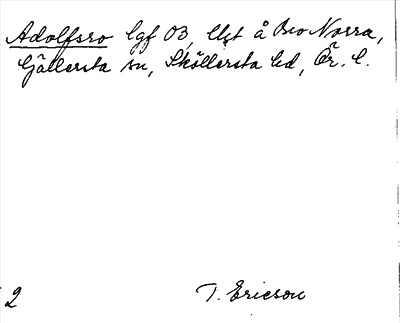 Adolfsro lgf OB, llgt å Bro Norra,
Gällersta sn, Sköllersta hd, Ör. l.
2 T. Ericson